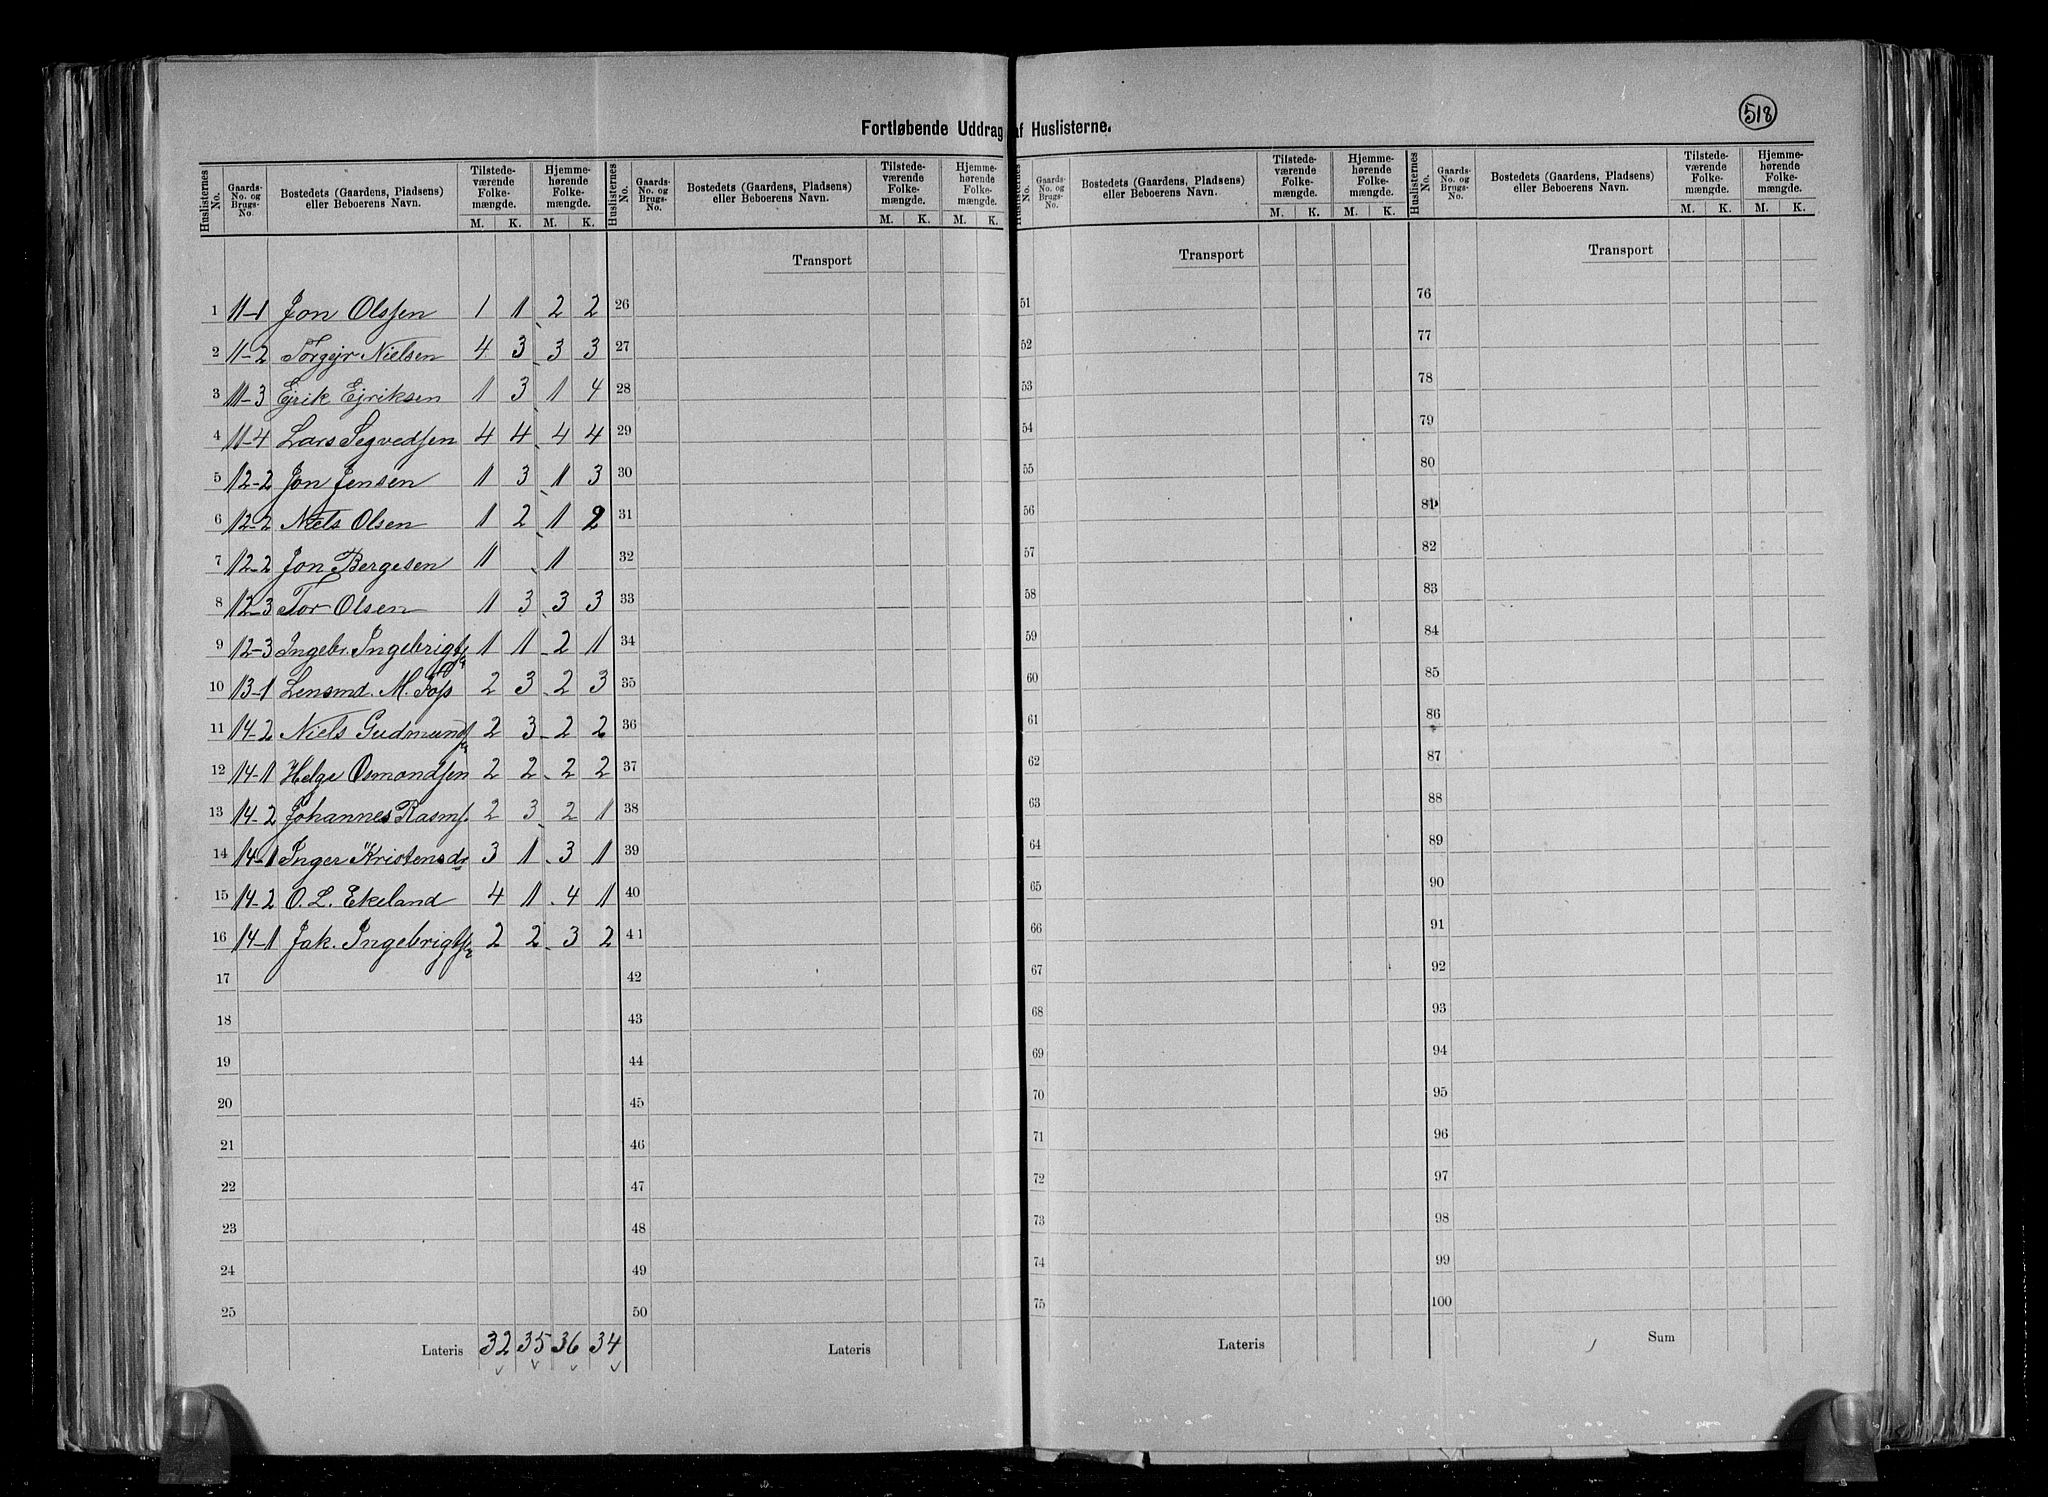 518
Fortløbende Uddrag af Huslisterne.
Huslisternes No. Gaards-No. og Brugs-No. Bostedets (Gaardens, Pladsens) eller Beboerens Navn. Tilstedeværende Folkemængde. M. K. Hjemmehørende Folkemængde. M. K.
1 11-1 Jon Olssen 1 1 2 2
2 11-2 Torgejr Nielsen 4 3 3 3
3 11-3 Ejrik Ejriksen 1 3 1 4
4 11-4 Lars Segvedsen 4 4 4 4
5 12-2 Jon Jensen 1 3 1 3
6 12-2 Niels Olsen 1 2 1 2
7 12-2 Jon Bergesen 1 1
8 12-3 Tor Olsen 1 3 3 3
9 12-3 Ingebr. Ingebrigts 1 1 2 1
10 13-1 Lensmd. M. Foss 2 3 2 3
11 14-2 Niels Gudmunds 2 3 2 2
12 14-1 Helge Osmondsen 2 2 2 2
13 14-2 Johannes Rasms. 2 3 2 1
14 14-1 Inger Kristensdr 3 1 3 1
15 14-2 O. L. Ekeland 4 1 4 1
16 14-1 Jak. Ingebrigts 2 2 3 2
17
18
19
20
21
22
23
24
25
Lateris 32 35 36 34
Huslisternes No. Gaards-No. og Brugs-No. Bostedets (Gaardens, Pladsens) eller Beboerens Navn. Tilstedeværende Folkemængde. M. K. Hjemmehørende Folkemængde. M. K.
Transport
26
27
28
29
30
31
32
33
34
35
36
37
38
39
40
41
42
43
44
45
46
47
48
49
50
Lateris
Huslisternes No. Gaards-No. og Brugs-No. Bostedets (Gaardens, Pladsens) eller Beboerens Navn. Tilstedeværende Folkemængde. M. K. Hjemmehørende Folkemængde. M. K.
Transport
51
52
53
54
55
56
57
58
59
60
61
62
63
64
65
66
67
68
69
70
71
72
73
74
75
Lateris
Huslisternes No. Gaards-No. og Brugs-No. Bostedets (Gaardens, Pladsens) eller Beboerens Navn. Tilstedeværende Folkemængde. M. K. Hjemmehørende Folkemængde. M. K.
Transport
76
77
78
79
80
81
82
83
84
85
86
87
88
89
90
91
92
93
94
95
96
97
98
99
100
Sum